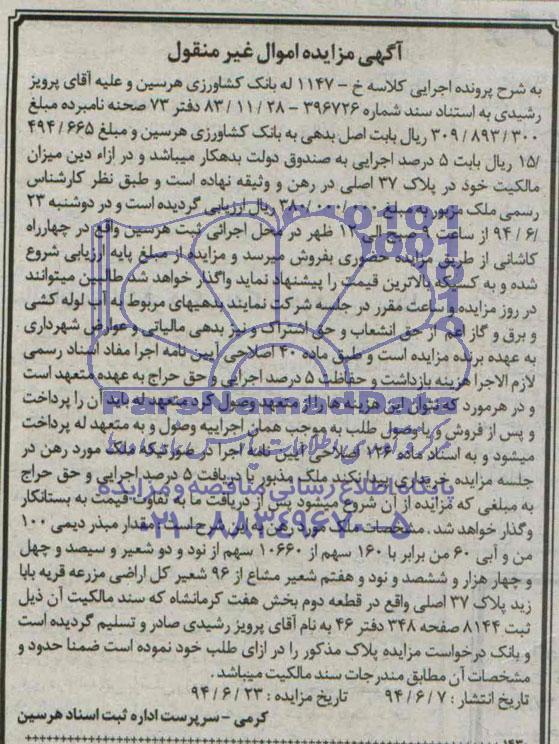 آگهی مزایده اموال غیر منقول
به شرح پرونده اجرایی کلاسه خ - ۱۱۴۷ له بانک کشاورزی هرسین و علیه آقای پرویز
رشیدی به استناد سند شماره ۳۹۶۷۲۶ - ۸۳/۱۱/۲۸ دفتر ۷۳ صحنه نامبرده مبلغ
۳۰۹/۸۹۳/۳۰۰ ریال بابت اصل بدهی به بانک کشاورزی هرسین و مبلغ ۴۹۴/۶۶۵
/۱۵ ریال بابت ۵ درصد اجرایی به صندوق دولت بدهکار میباشد و در ازاء دین میزان
مالکیت خود در پلاک ۳۷ اصلی در رهن و وثیقه نهاده است و طبق نظر کارشناس
رسمی ملک مزبور به مبلغ ۳۸۰/۰۰۰/۰۰۰ ریال ارزیابی گردیده است و در دوشنبه ۲۳
/۹۴/۶ از ساعت ۹ صبح الی ۱۲ ظهر در محل اجرائی ثبت هرسین واقع در چهارراه
کاشانی از طریق مزایده حضوری بفروش میرسد و مزایده از مبلغ پایه ارزیابی شروع
شده و به کسیکه بالاترین قیمت را پیشنهاد نماید واگذار خواهد شد طالبین میتوانند
در روز مزایده و ساعت مقرر در جلسه شرکت نمایند بدهیهای مربوط به آب لوله کشی
و برق و گاز اعم از حق انشعاب و حق اشتراک و نیز بدهی مالیاتی و عوارض شهرداری
به عهده برنده مزایده است و طبق ماده ۴۰ اصلاحی آیین نامه اجرا مفاد اسناد رسمی
لازم الاجرا هزینه بازداشت و حفاظت ۵ درصد اجرایی و حق حراج به عهده متعهد است
و در هر مورد که نتوان این هزینه ها را از متعهد وصول کرد متعهد له باید آن را پرداخت
و پس از فروش و یا وصول طلب به موجب همان اجراییه وصول و به متعهد له پرداخت
میشود و به استناد ماده ۱۲۶ اصلاحی آیین نامه اجرا در صورتیکه ملک مورد رهن در
جلسه مزایده خریداری پیدا نکند ملک مذبور با دریافت ۵ درصد اجرایی و حق حراج
به مبلغی که مزایده از آن شروع میشود پس از دریافت ما به تفاوت قیمت به بستانکار
وگذار خواهد شد. مشخصات ملک مورد رهن به این شرح است: مقدار مبذر دیمی ۱۰۰
من و آبی ۶۰ من برابر با ۱۶۰ سهم از ۱۰۶۶۰ سهم از نود و دو شعیر و سیصد و چهل
و چهار هزار و ششصد و نود و هفتم شعیر مشاع از ۹۶ شعیر کل اراضی مزرعه قریه بابا
زید پلاک ۳۷ اصلی واقع در قطعه دوم بخش هفت کرمانشاه که سند مالکیت آن ذیل
ثبت ۸۱۴۴ صفحه ۳۴۸ دفتر ۴۶ به نام آقای پرویز رشیدی صادر و تسلیم گردیده است
و بانک درخواست مزایده پلاک مذکور را در ازای طلب خود نموده است ضمنا حدود و
مشخصات آن مطابق مندرجات سند مالکیت میباشد.
تاریخ انتشار: ۹۴/۶/۷ تاریخ مزایده: ۹۴/۶/۲۳
کرمی - سرپرست اداره ثبت اسناد هرسین
ParsNamadData
پایگاه اطلاع رسانی مناقصه و مزایده
۰۲۱-۸۸۳۴۹۶۷۰-۵